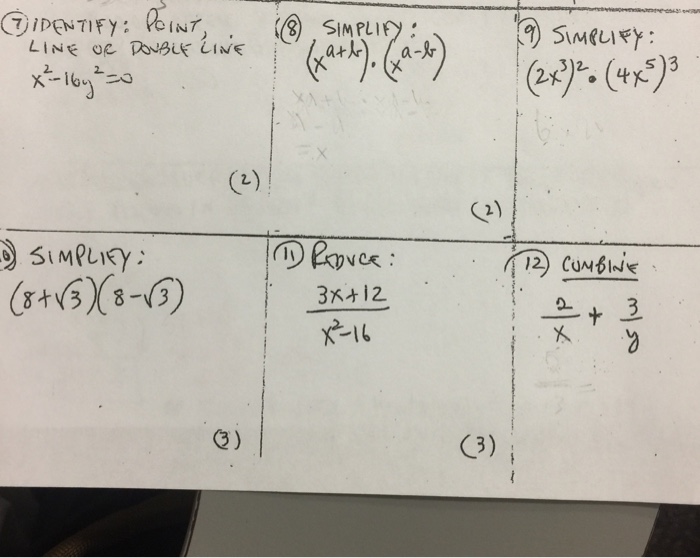 ⑦ IDENTIFY: POINT,
LINE OR DOUBLE LINE
x²-16y²=0
(2)
⑧ SIMPLIFY:
(x^{a+b})·(x^{a-b})
(2)
9) SIMPLIFY:
(2x³)²·(4x⁵)³
SIMPLIFY:
(8+√3)(8-√3)
(3)
⑪ REDUCE:
3x+12
x²-16
(3)
12) COMBINE
2/x + 3/y